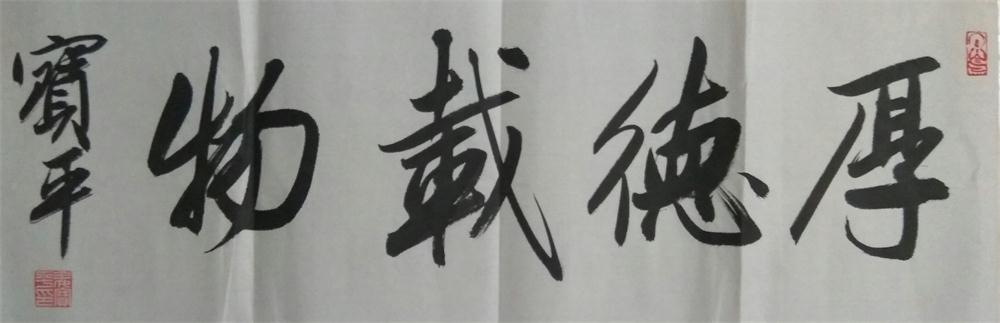 厚德載物
寶平